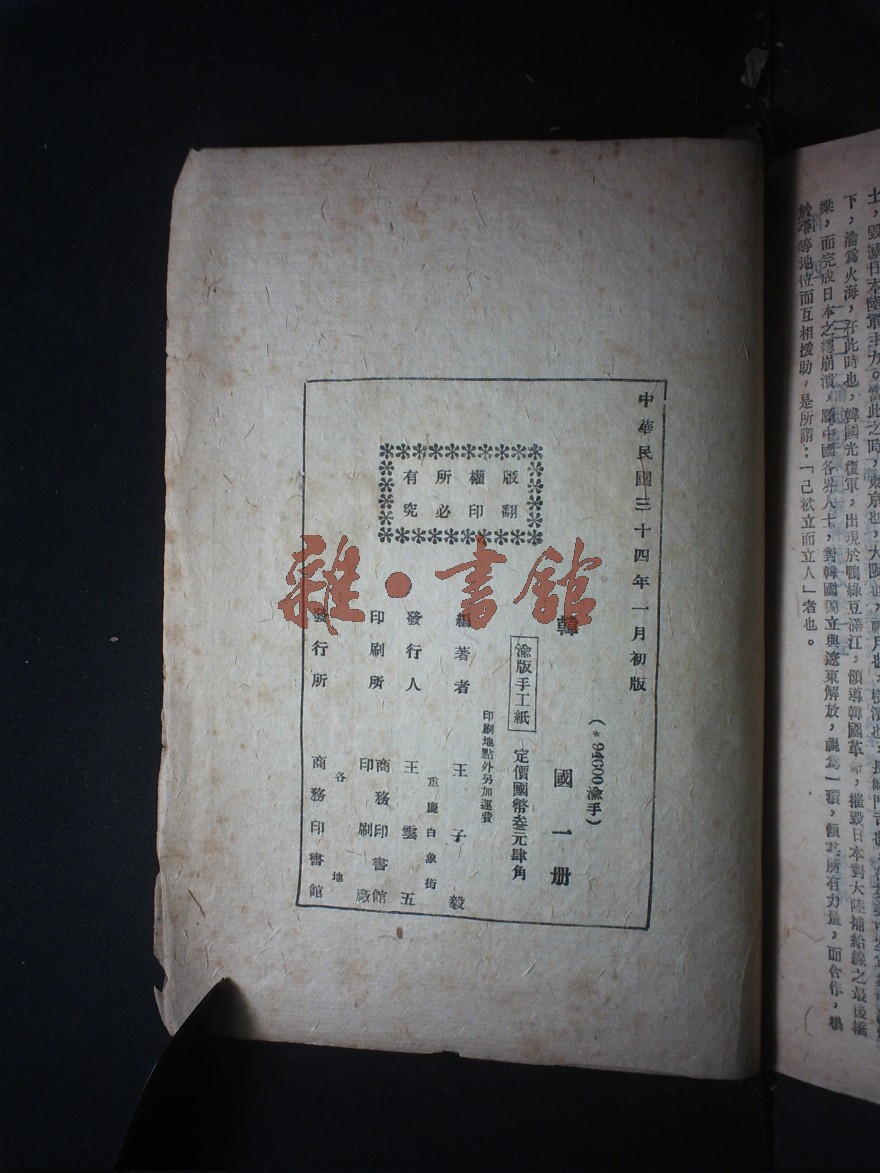 下，淪爲火海，在此時也，韓國光復軍，出現於鴨綠豆滿江，領導韓國革命，摧毀日本對大陸補給線之最後橋
梁，而完成日本之總崩潰，願中國各界人士，對韓國獨立與遼東解放，視爲一環，傾其所有力量，而合作，
於平等地位而互相援助，是所謂：「己欲立而立人」者也。
中華民國三十四年一月初版
（*94600渝手）
韓國一册
渝版手工紙
定價國幣叁元肆角
印刷地點外另加運費
編著者 王子毅
重慶白象街
發行人 王雲五
印刷所 商務印書館印刷廠
各地
發行所 商務印書館
版權所有
翻印必究
雜·書館